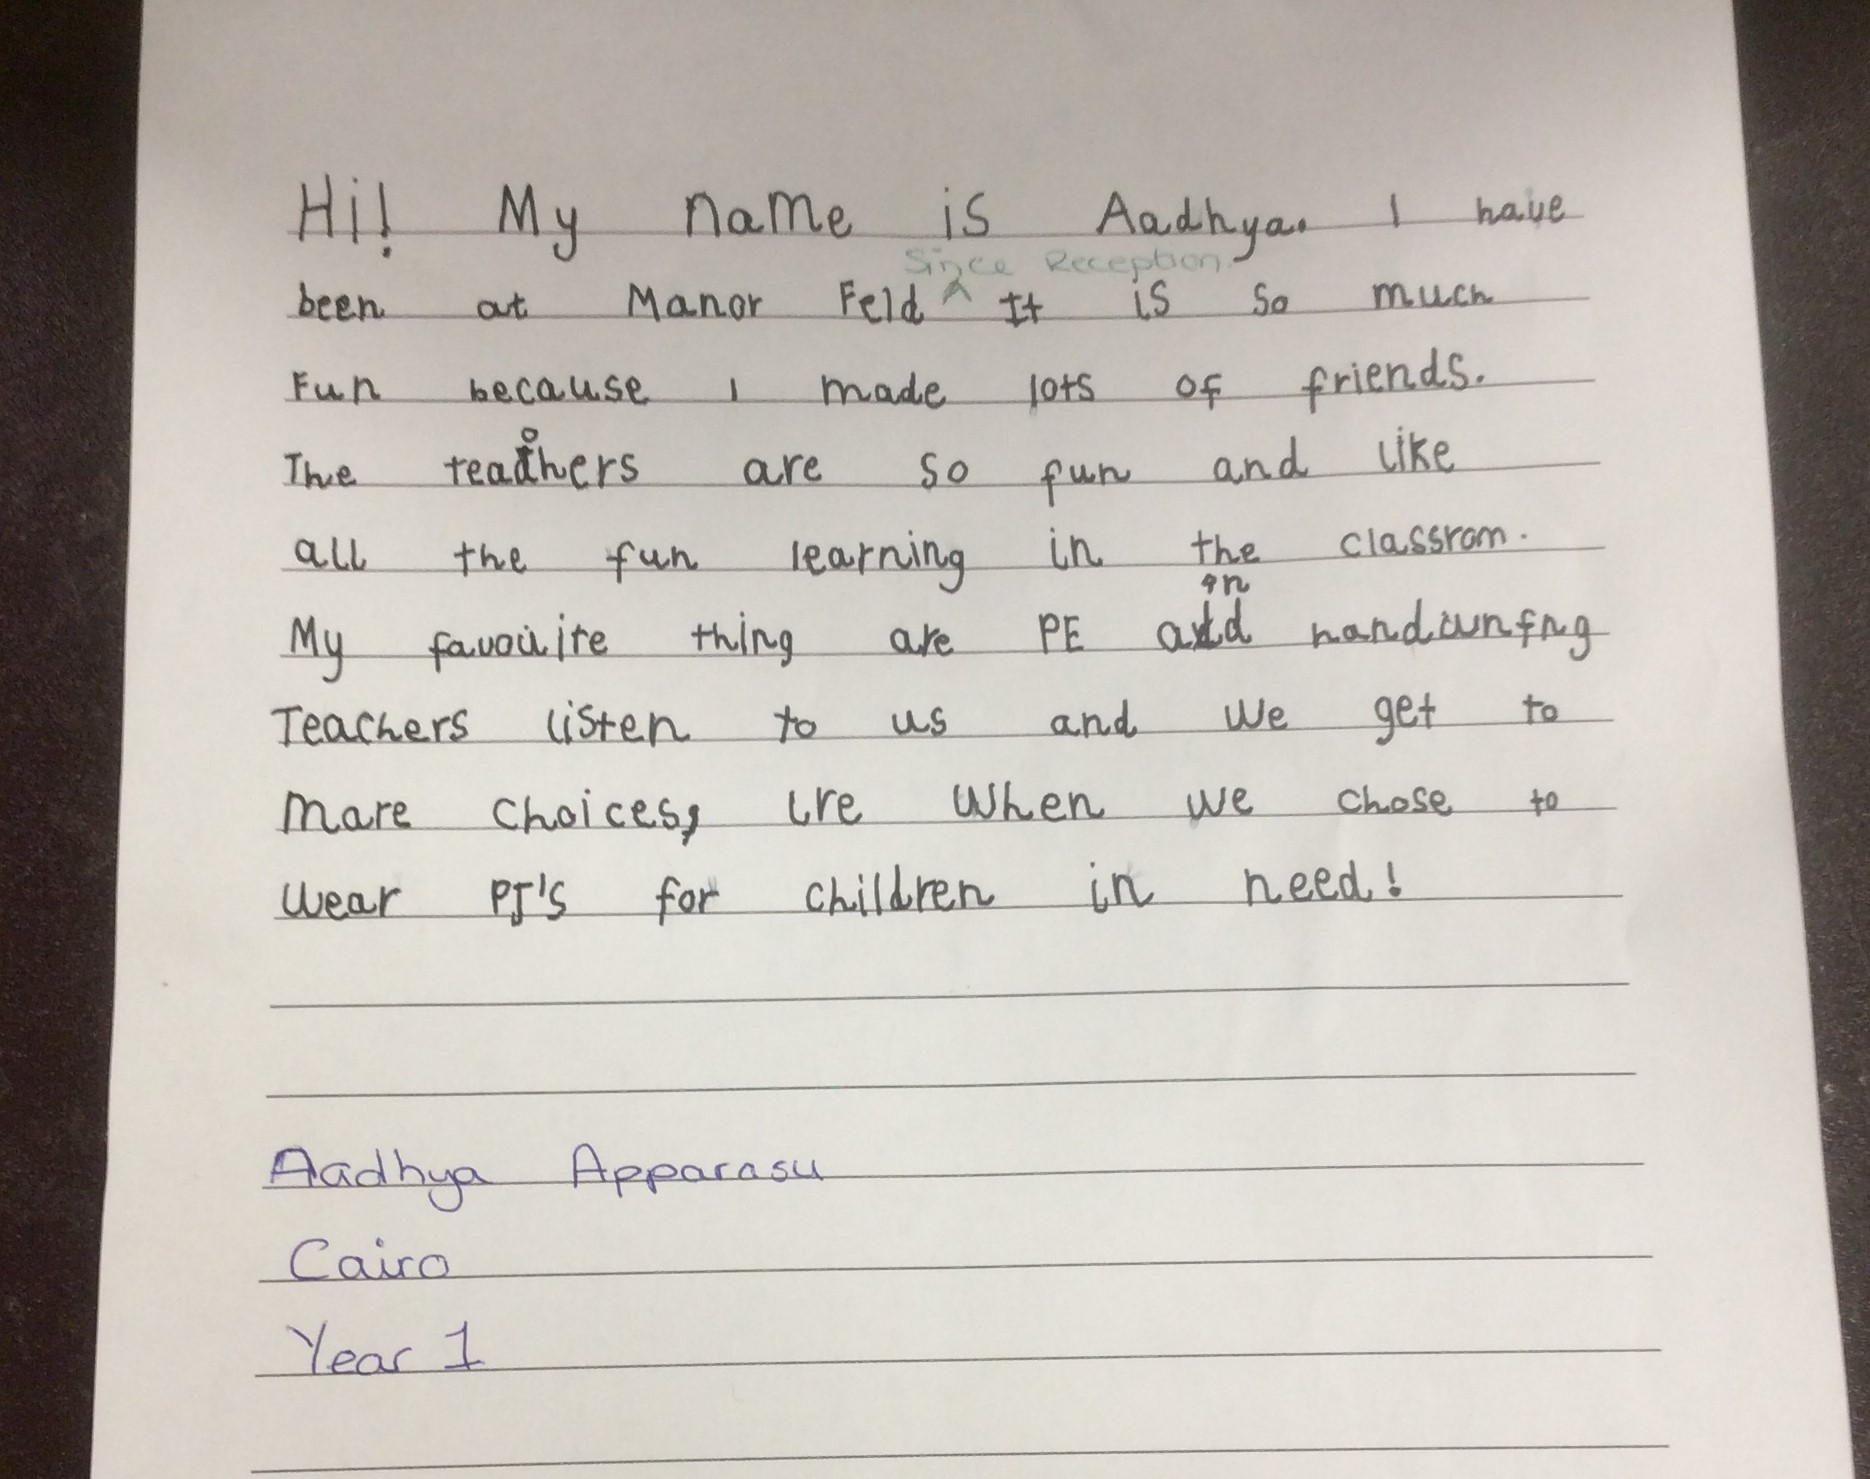 Hi! My name is Aadhya. I have
since Reception.
been at Manor Feld ^ It is so much
Fun because I made lots of friends.
The teachers are so fun and like
all the fun learning in the classrom.
My thing are PE and
Teachers listen to us and we get to
mare choices, lre when we chose to
wear PJ's for children in need!
Aadhya Apparasu
Cairo
Year 1